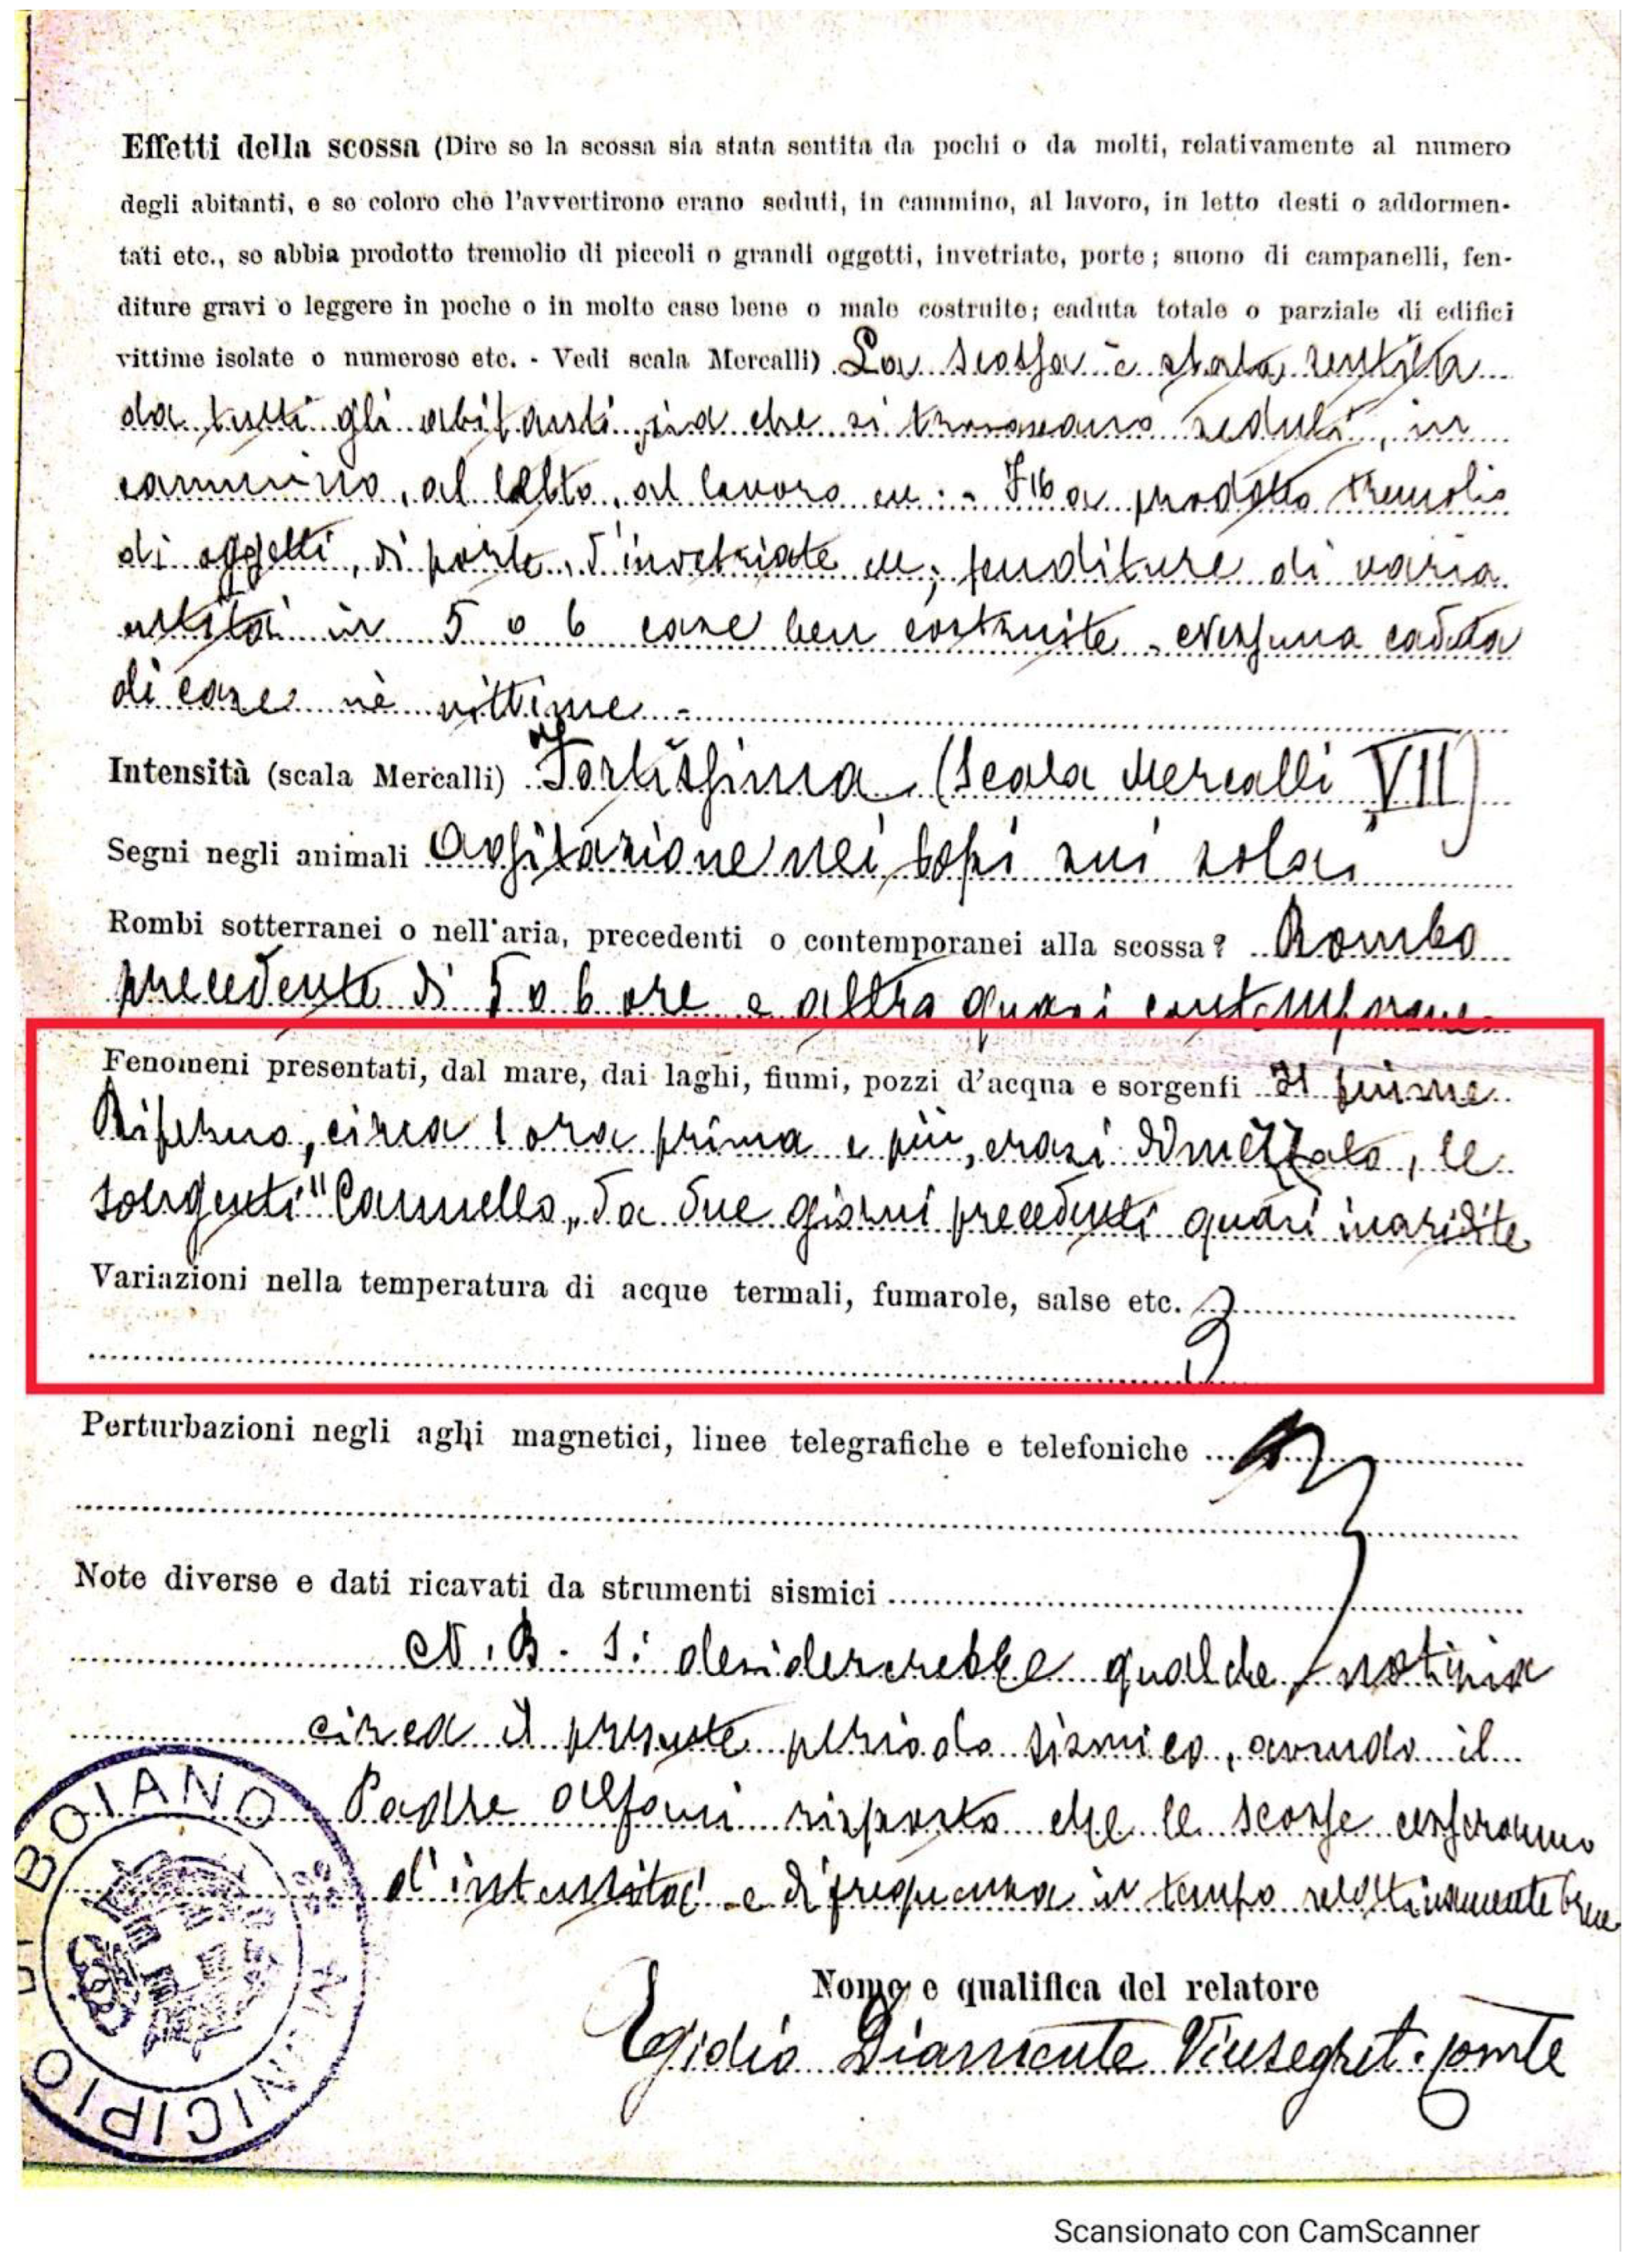 Effetti della scossa (Dire se la scossa sia stata sentita da pochi o da molti, relativamente al numero
degli abitanti, e se coloro che l'avvertirono erano seduti, in cammino, al lavoro, in letto desti o addormen-
tati etc., se abbia prodotto tremolio di piccoli o grandi oggetti, invetriate, porte; suono di campanelli, fen-
diture gravi o leggere in poche o in molte case bene o male costruite; caduta totale o parziale di edifici
vittime isolate o numerose etc. - Vedi scala Mercalli) La scossa è stata sentita
da tutti gli abitanti sia che si trovavano seduti, in
cammino, al letto, al lavoro ecc: - Ha prodotto tremolio
di oggetti, di porte, d'invetriate ecc; fenditure di varia
entità in 5 o 6 case ben costruite. Nessuna caduta
di case nè vittime -
Intensità (scala Mercalli) Fortissima (Scala Mercalli VII)
Segni negli animali Agitazione nei topi sui solai
Rombi sotterranei o nell'aria, precedenti o contemporanei alla scossa? Rombo
precedente di 5 o 6 ore e altro quasi contemporaneo
Fenomeni presentati, dal mare, dai laghi, fiumi, pozzi d'acqua e sorgenti Il fiume
Biferno, circa 1 ora prima e più, erasi dimezzato, le
sorgenti "Cannello" da due giorni precedenti quasi inaridite
Variazioni nella temperatura di acque termali, fumarole, salse etc.
Perturbazioni negli aghi magnetici, linee telegrafiche e telefoniche
Note diverse e dati ricavati da strumenti sismici
N.B. Si desidererebbe qualche notizia
circa il presente periodo sismico, avendo il
Padre Alfani risposto che le scosse cesseranno
d'intensità e di frequenza in tempo relativamente breve
Nome e qualifica del relatore
Egidio Diamente Vicesegret. comle
MUNICIPIO DI BOIANO
Scansionato con CamScanner